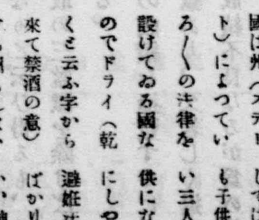 國は州(ステー
ト)によつてい
ろ〳〵の法律を
設けてゐる國な
のでドライ(乾
くと云ふ字から
來て禁酒の意)
も子供
い三人
供にな
にしや
避姙
ばかり